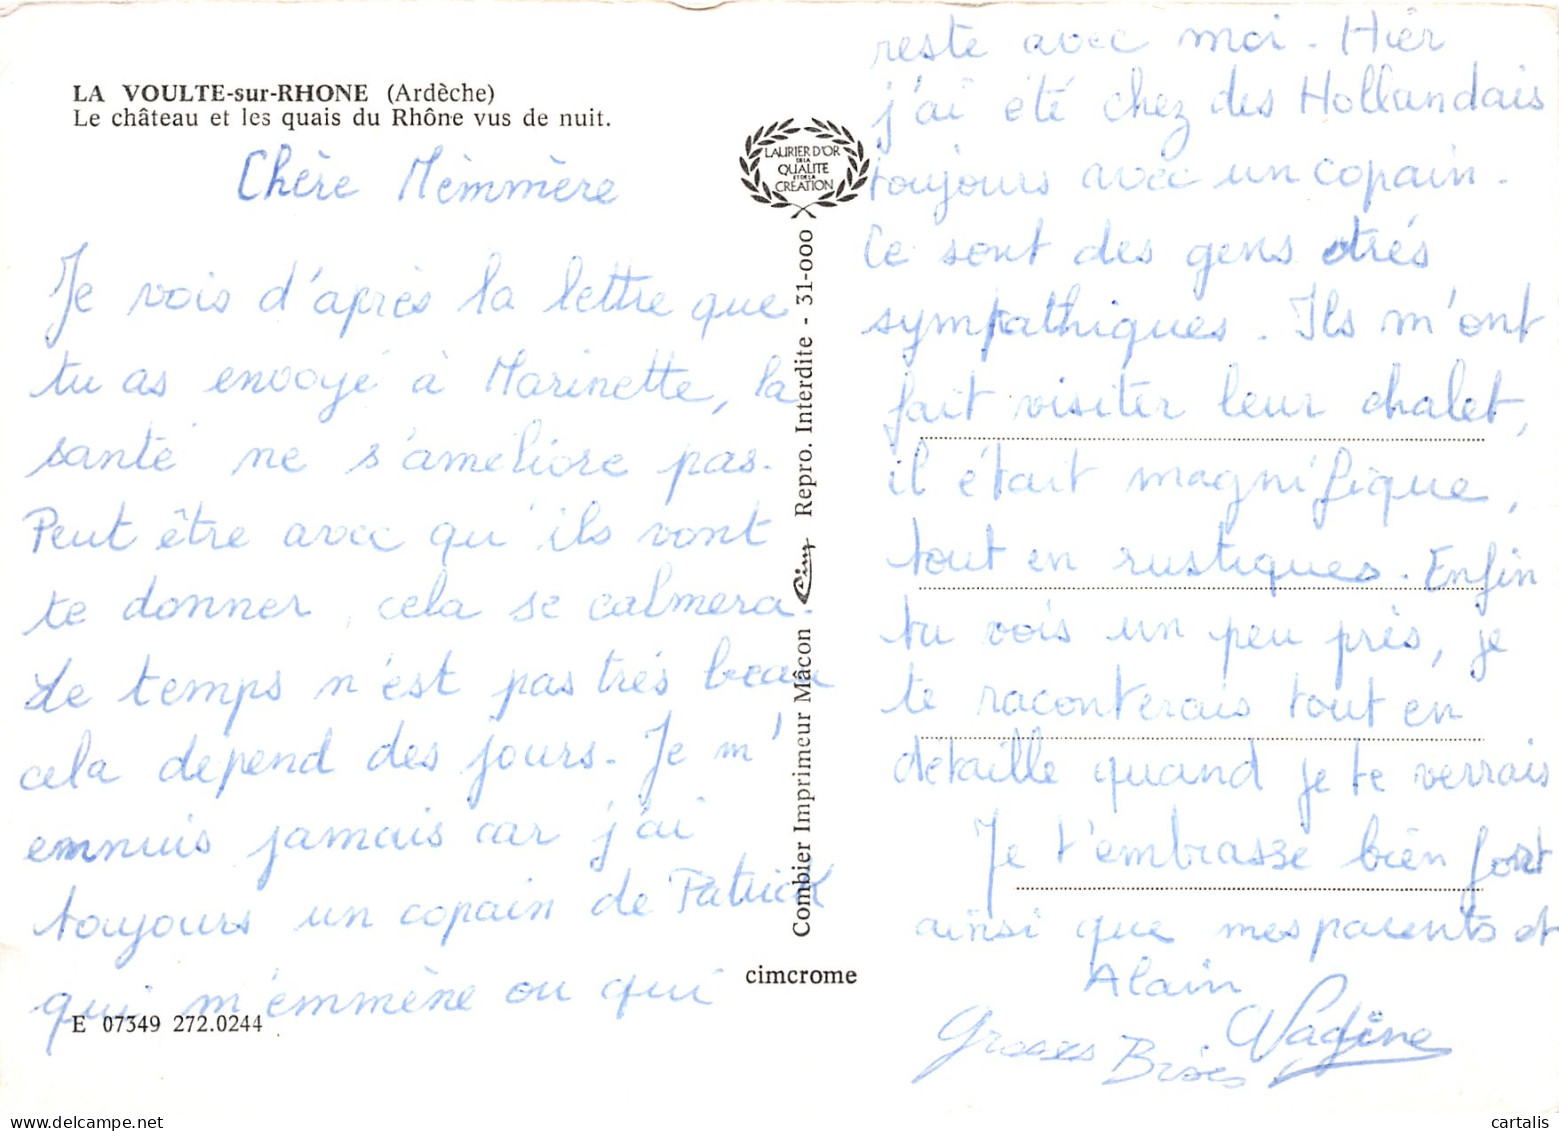 LA VOULTE-sur-RHONE (Ardèche)
Le château et les quais du Rhône vus de nuit.
Chère Mèmmère
Je vois d'après la lettre que
tu as envoyé à Marinette, la
santé ne s'améliore pas.
Peut être avec qu'ils vont
te donner, cela se calmera.
Le temps n'est pas trés beau
cela dépend des jours. Je m'
ennuis jamais car j'ai
toujours un copain de Patrick
qui m'emmène ou qui
E 07349 272.0244
LAURIER D'OR
DE LA
QUALITE
ET DE LA
CREATION
Combier Imprimeur Mâcon Cim Repro. Interdite - 31-000
cimcrome
reste avec moi. Hier
j'ai été chez des Hollandais
toujours avec un copain.
Ce sont des gens trés
sympathiques. Ils m'ont
fait visiter leur chalet,
il était magnifique,
tout en rustiques. Enfin
tu vois un peu près, je
te raconterais tout en
détaille quand je te verrais
Je t'embrasse bien fort
ainsi que mes parents et
Alain
Grosses Bises Nadine
cartalis
www.delcampe.net